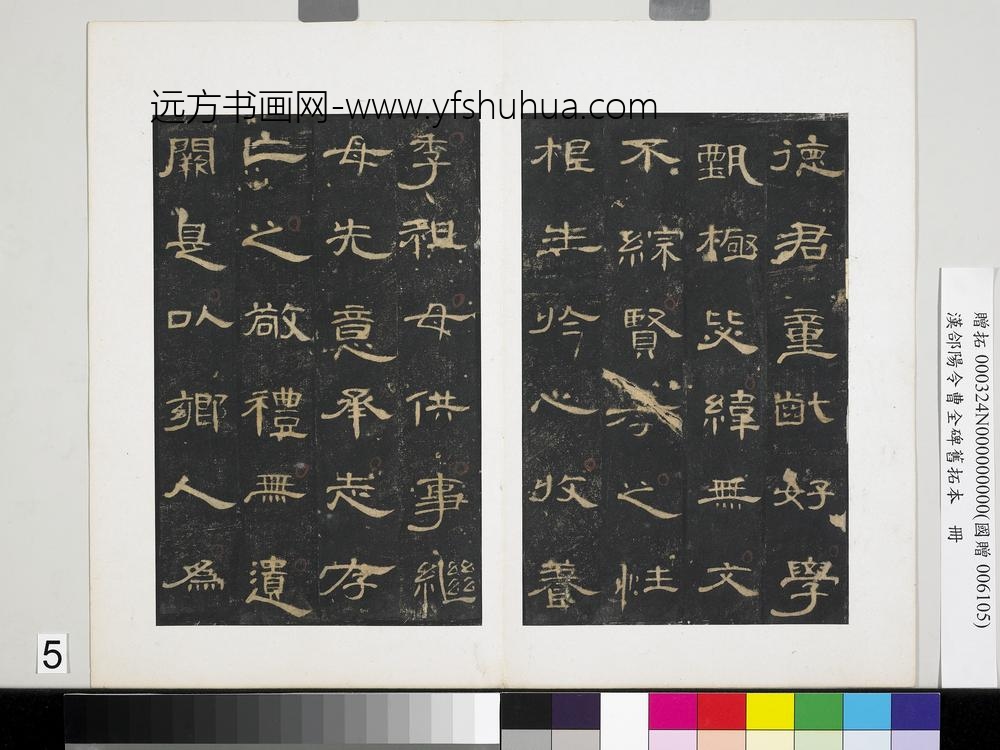 远方书画网-www.yfshuhua.com
德君童齔好學
甄極毖緯無文
不綜賢孝之性
根生於心收養
季祖母供事繼
母先意承志存
亡之敬禮無遺
闕是以鄉人為
贈拓 000324N000000000(國贈 006105)
漢郃陽令曹全碑舊拓本 冊
5